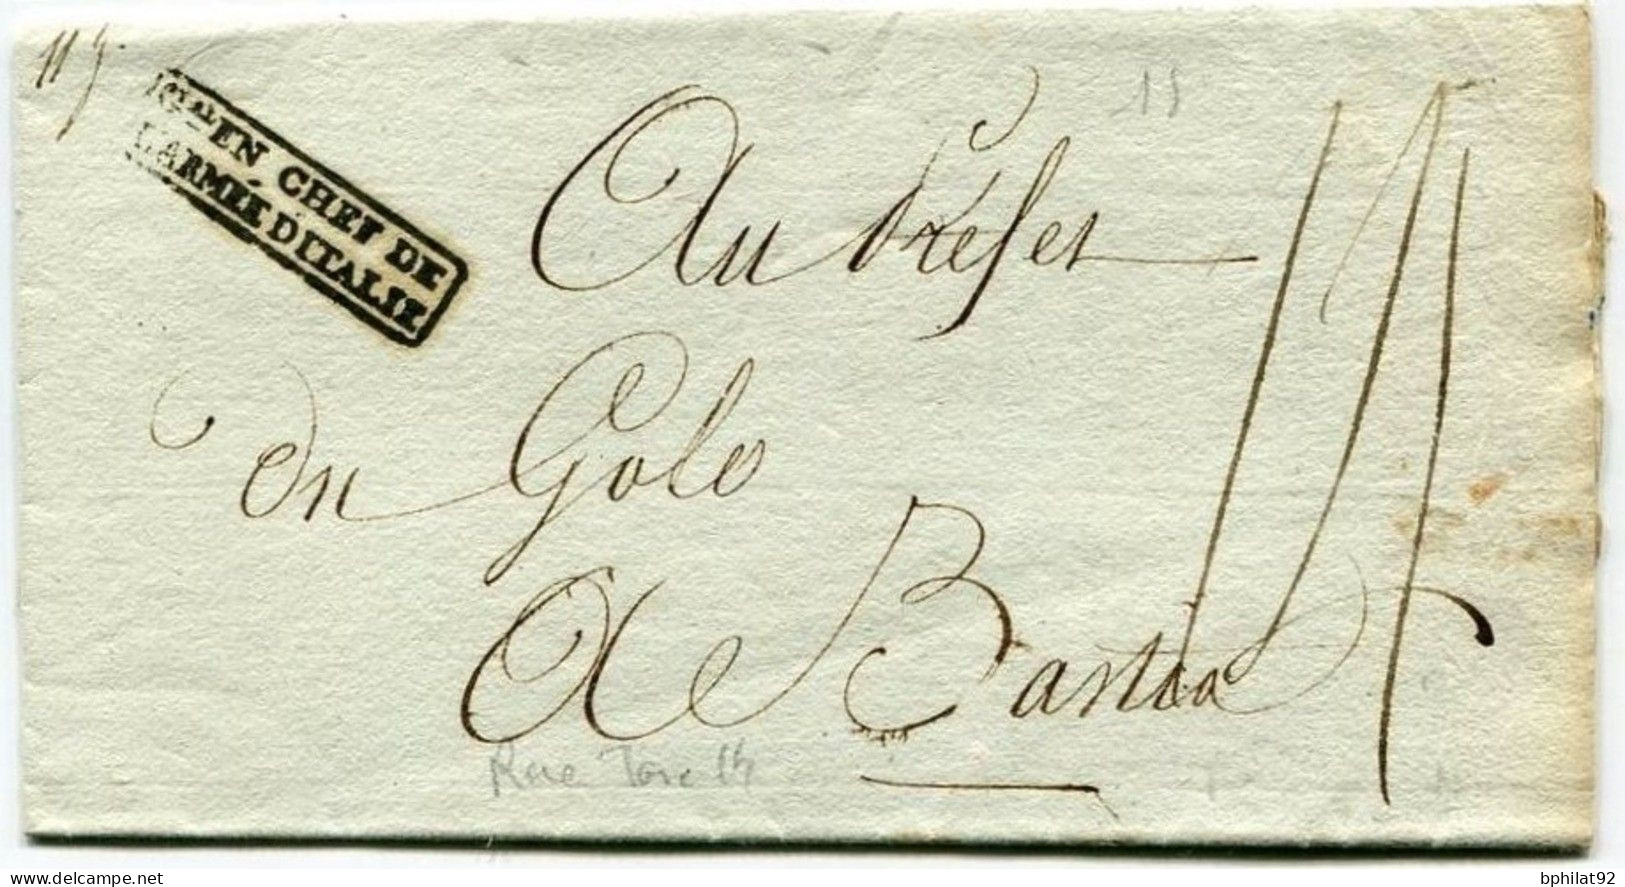 Gal EN CHEF DE
L'ARMÉE D'ITALIE
15
Au Préfet
du Golo
A Bastia
Rare
delcampe.net
bphilat92